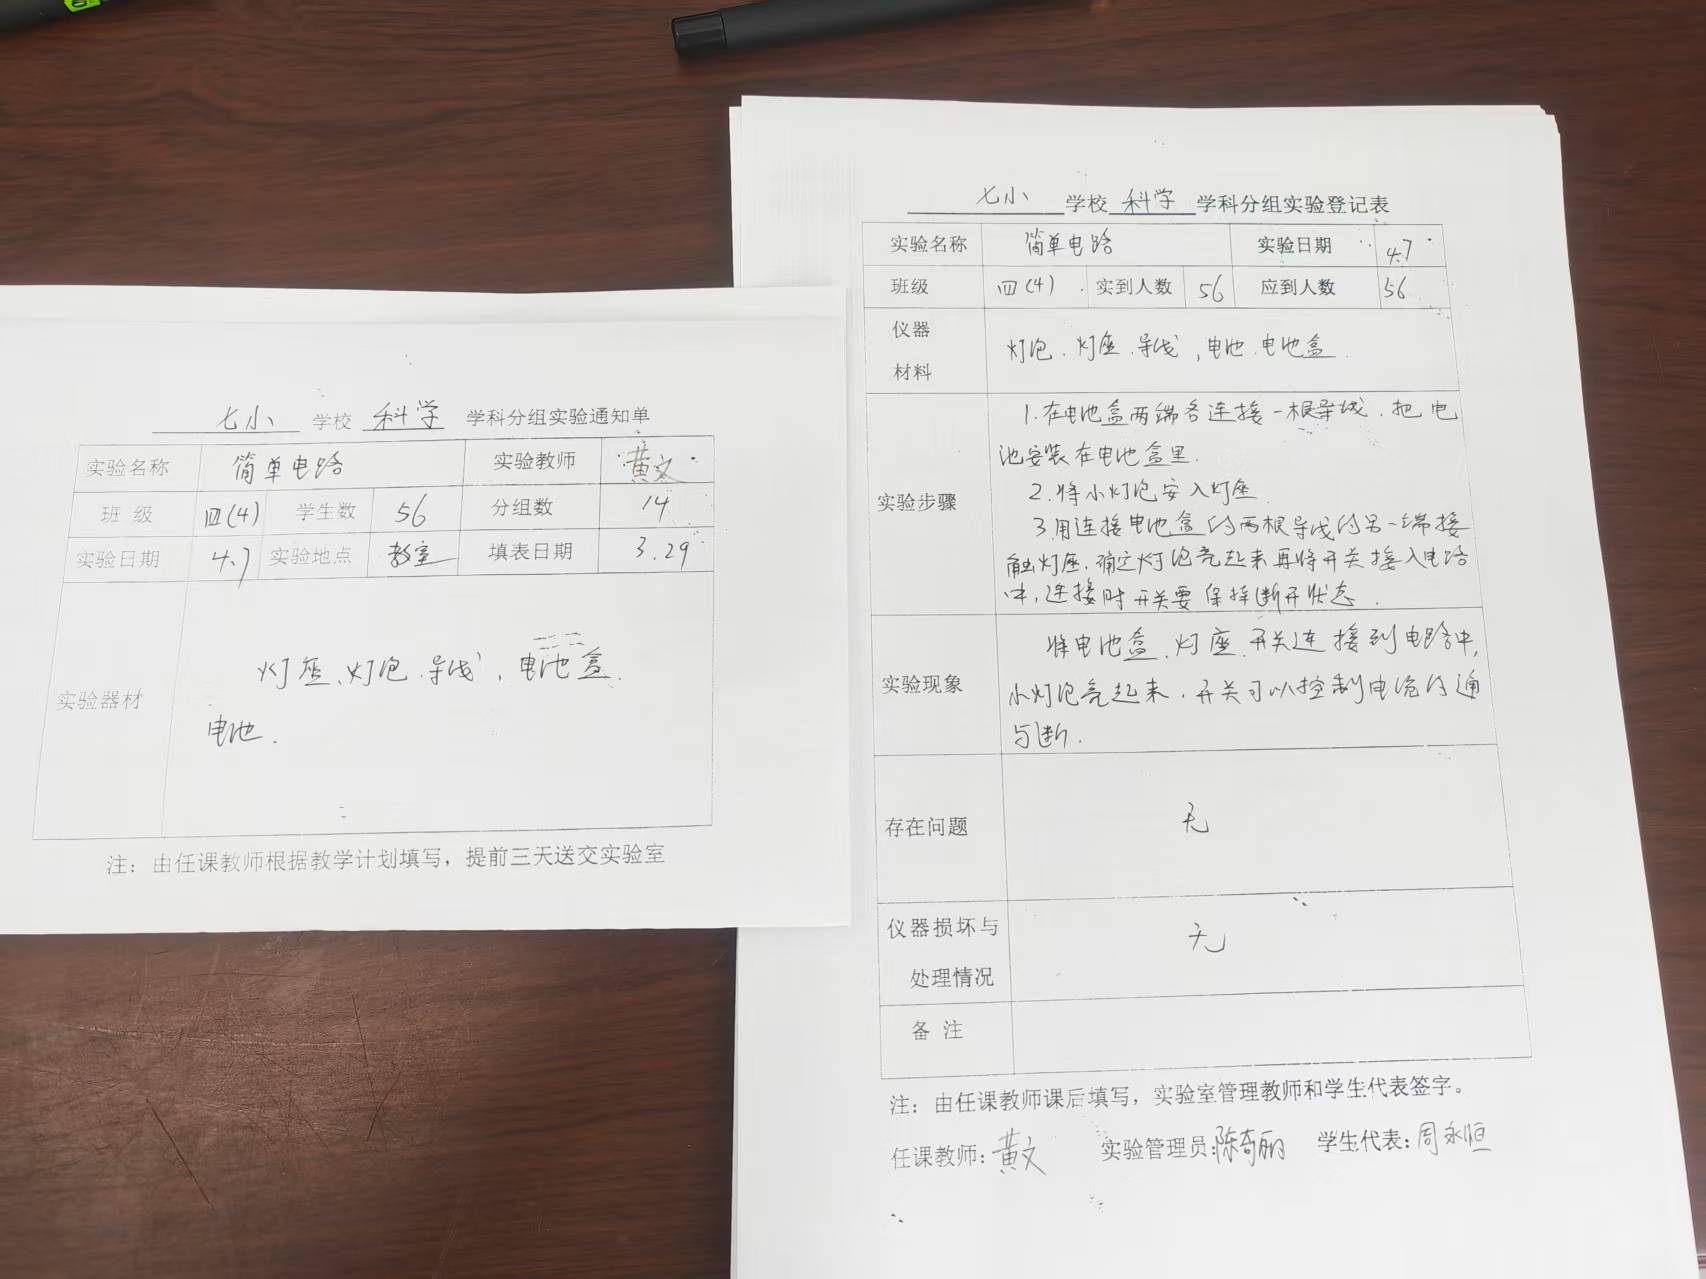 七小 学校 科学 学科分组实验通知单
实验名称 简单电路 实验教师 黄文
班 级 四(4) 学生数 56 分组数 14
实验日期 4.7 实验地点 教室 填表日期 3.29
实验器材
灯座、灯泡、导线、电池盒、
电池.
注：由任课教师根据教学计划填写，提前三天送交实验室
七小 学校 科学 学科分组实验登记表
实验名称 简单电路 实验日期 4.7
班级 四(4) 实到人数 56 应到人数 56
仪器
材料
灯泡、灯座、导线,电池、电池盒
实验步骤
1.在电池盒两端各连接一根导线,把电
池安装在电池盒里.
2.将小灯泡安入灯座
3.用连接电池盒的两根导线的另一端接
触灯座,确定灯泡亮起来再将开关接入电路
中,连接时开关要保持断开状态.
实验现象
将电池盒、灯座、开关连接到电路中,
小灯泡亮起来,开关可以控制电流的通
与断.
存在问题 无
仪器损坏与
处理情况
无
备 注
注：由任课教师课后填写，实验室管理教师和学生代表签字。
任课教师:黄文 实验管理员:陈奇丽 学生代表:周永恒